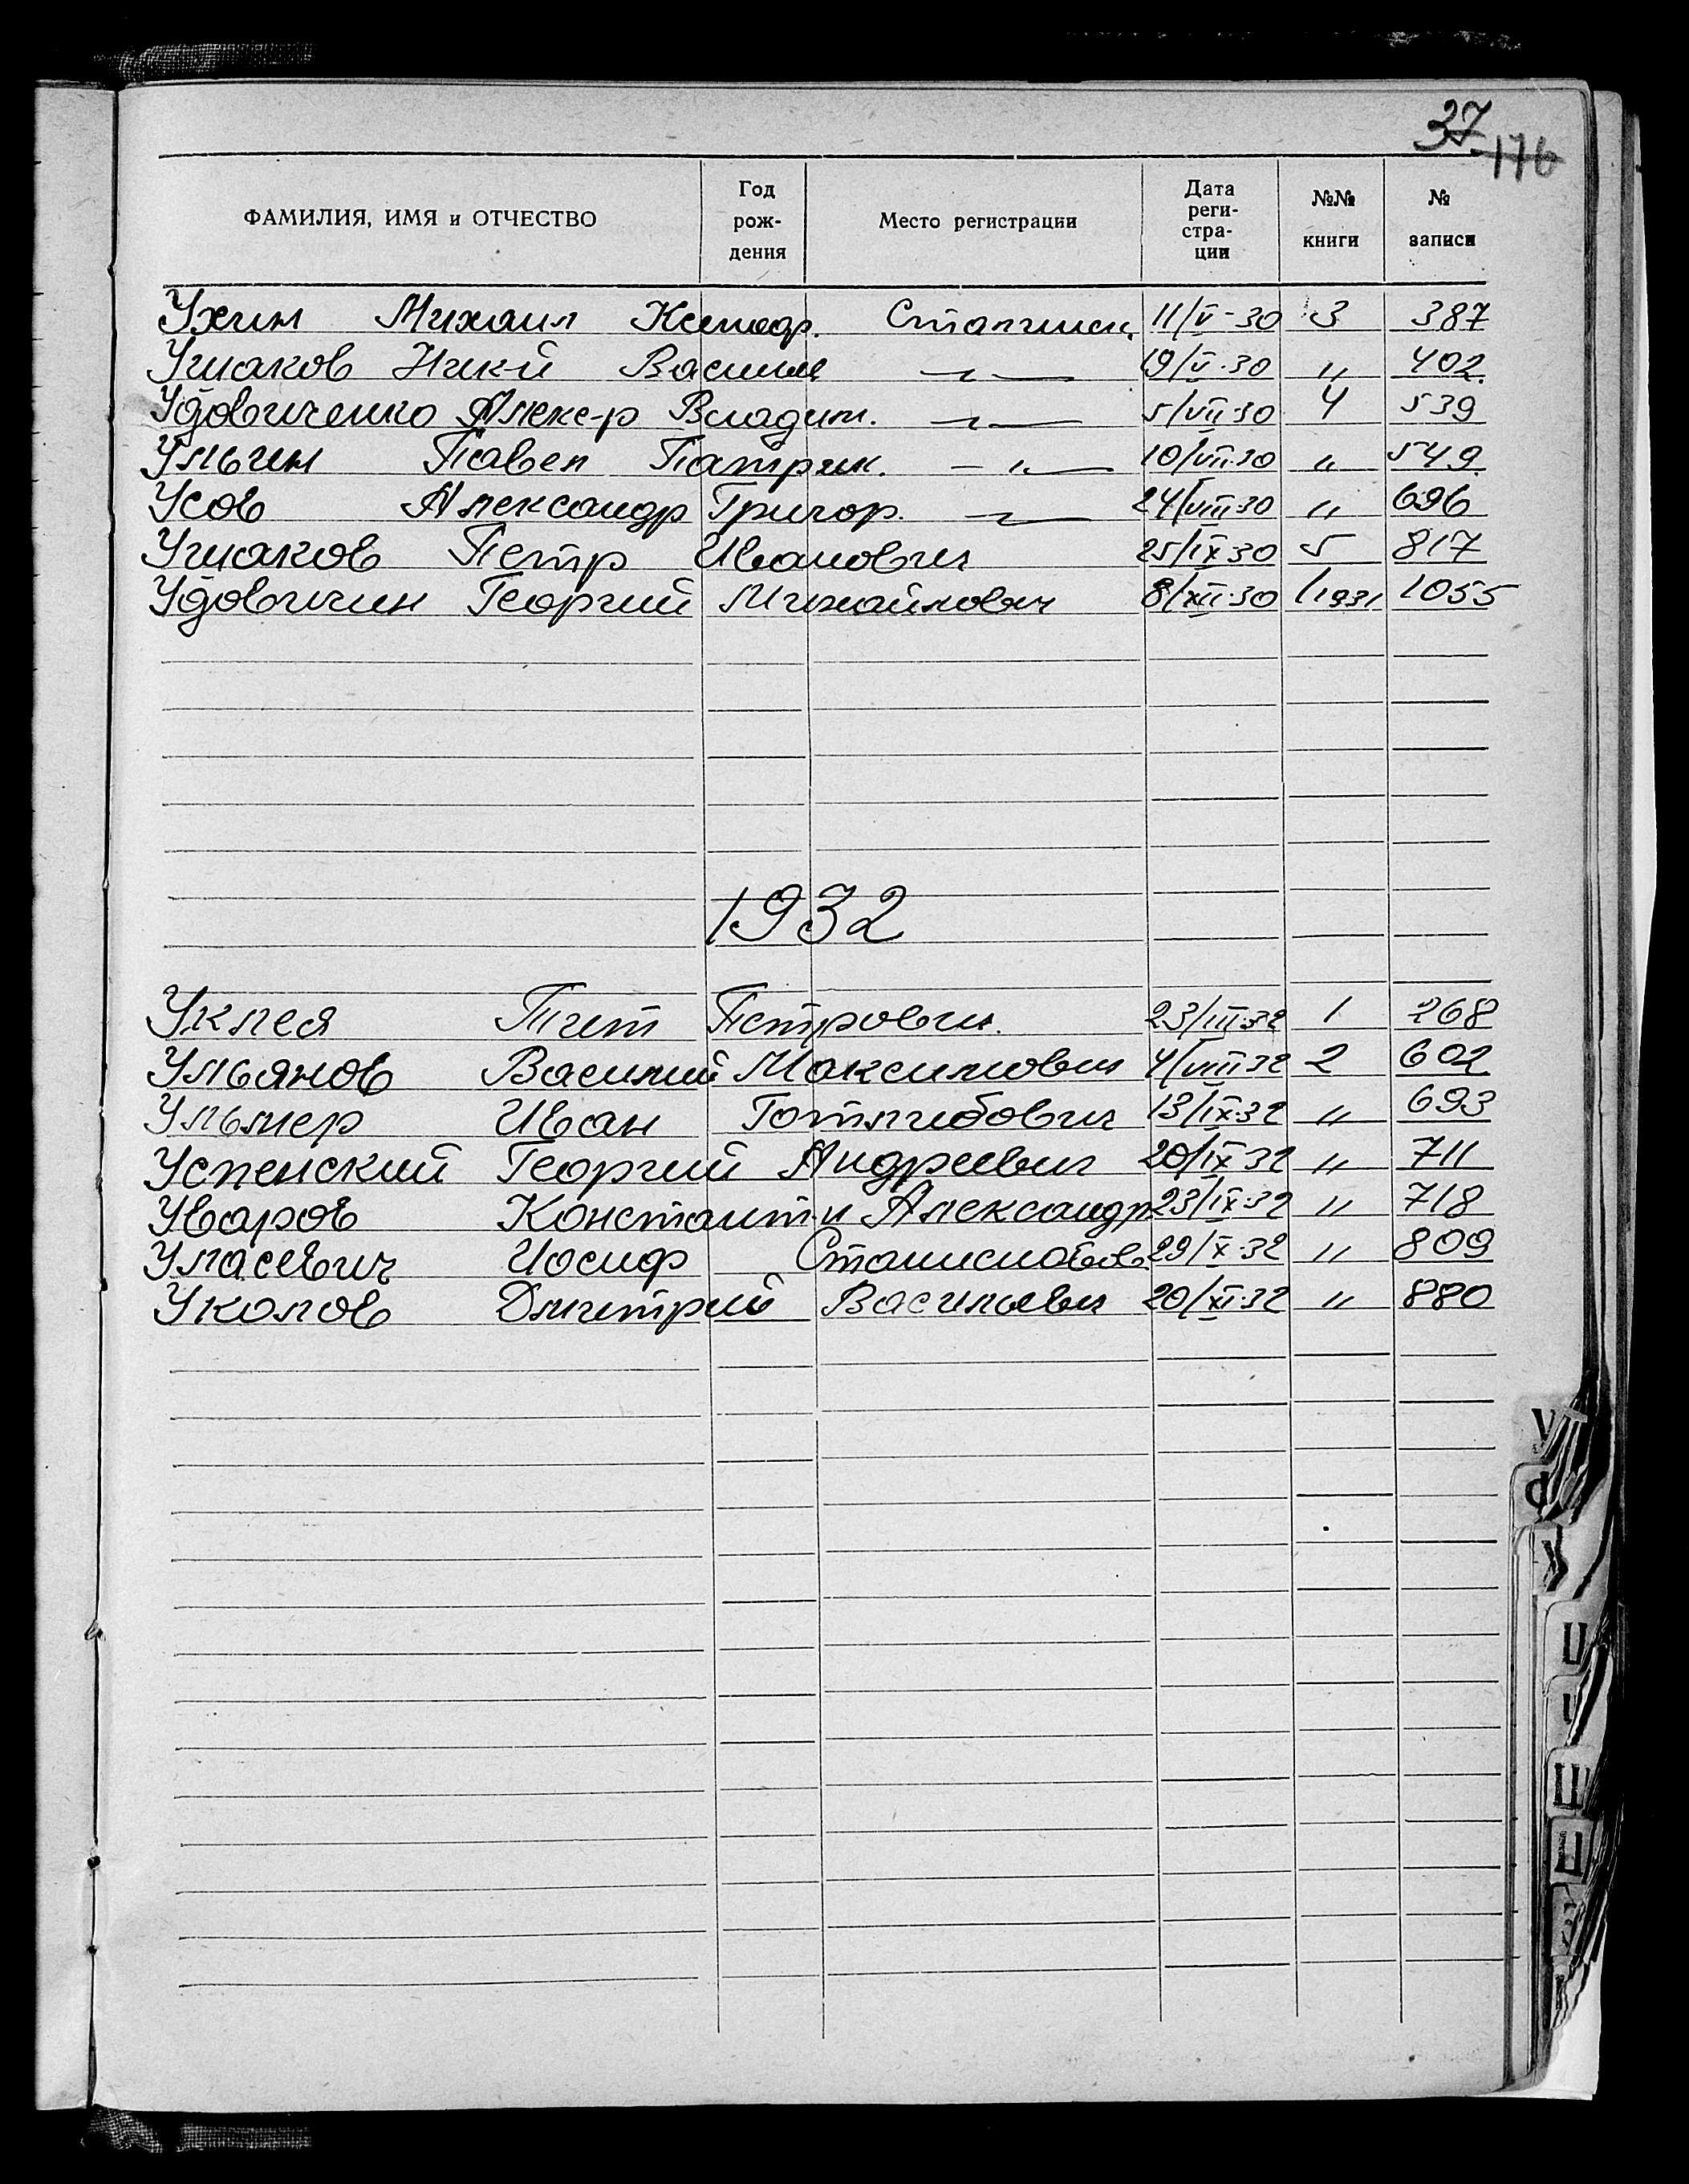 37
176
ФАМИЛИЯ, ИМЯ и ОТЧЕСТВО Год рож- дения Место регистрации Дата реги- стра- ции №№ книги № записи
Ухин Михаил Сталинск. 11/V-30 3 387
Ушаков Ник-й Василье —〃— 19/V-30 〃 402.
Удовиченко Алекс-р Владим. —〃— 5/VII-30 4 539
Ульин Павел Патрик. —〃— 10/VII-30 〃 549.
Усов Александр Григор. —〃— 24/VIII-30 〃 696
Ушаков Петр Иванович 25/IX-30 5 817
Удовичин Георгий Михайлович 8/XII-30 1/1931 1055
1932
Уклея Тит Петрович. 23/III-32 1 268
Ульянов Василий Максимович 4/VIII-32 2 602
Ульмер Иван Готлибович 13/IX-32 〃 693
Успенский Георгий Андреевич 20/IX-32 〃 711
Уваров Константин Александр 23/IX-32 〃 718
Уласевич Иосиф Станиславов. 29/X-32 〃 809
Уколов Дмитрий Васильевич 20/XI-32 〃 880
У
Ф
Х
Ш